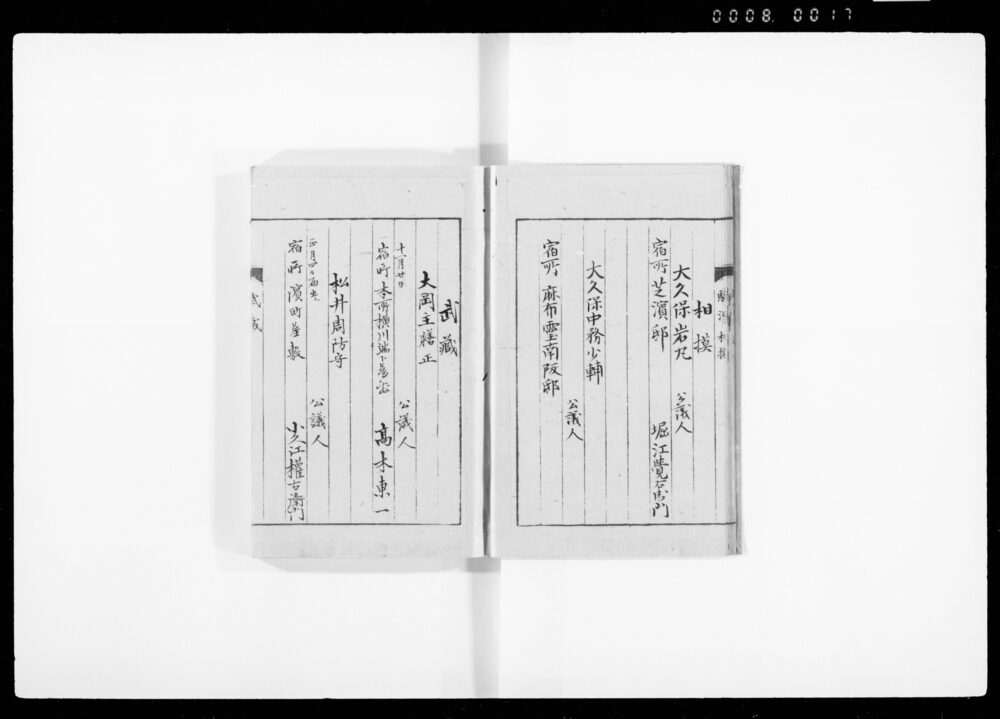 0008 0017
相摸
大久保岩丸
公議人
宿所 芝濱邸
堀江覺右衛門
大久保中務少輔
公議人
宿所 麻布霊南阪邸
武藏
大岡主膳正
十一月廿日
公議人
宿所 本所横川端下屋敷
高木東一
松井周防守
公議人
宿所 濱町屋敷
武藏